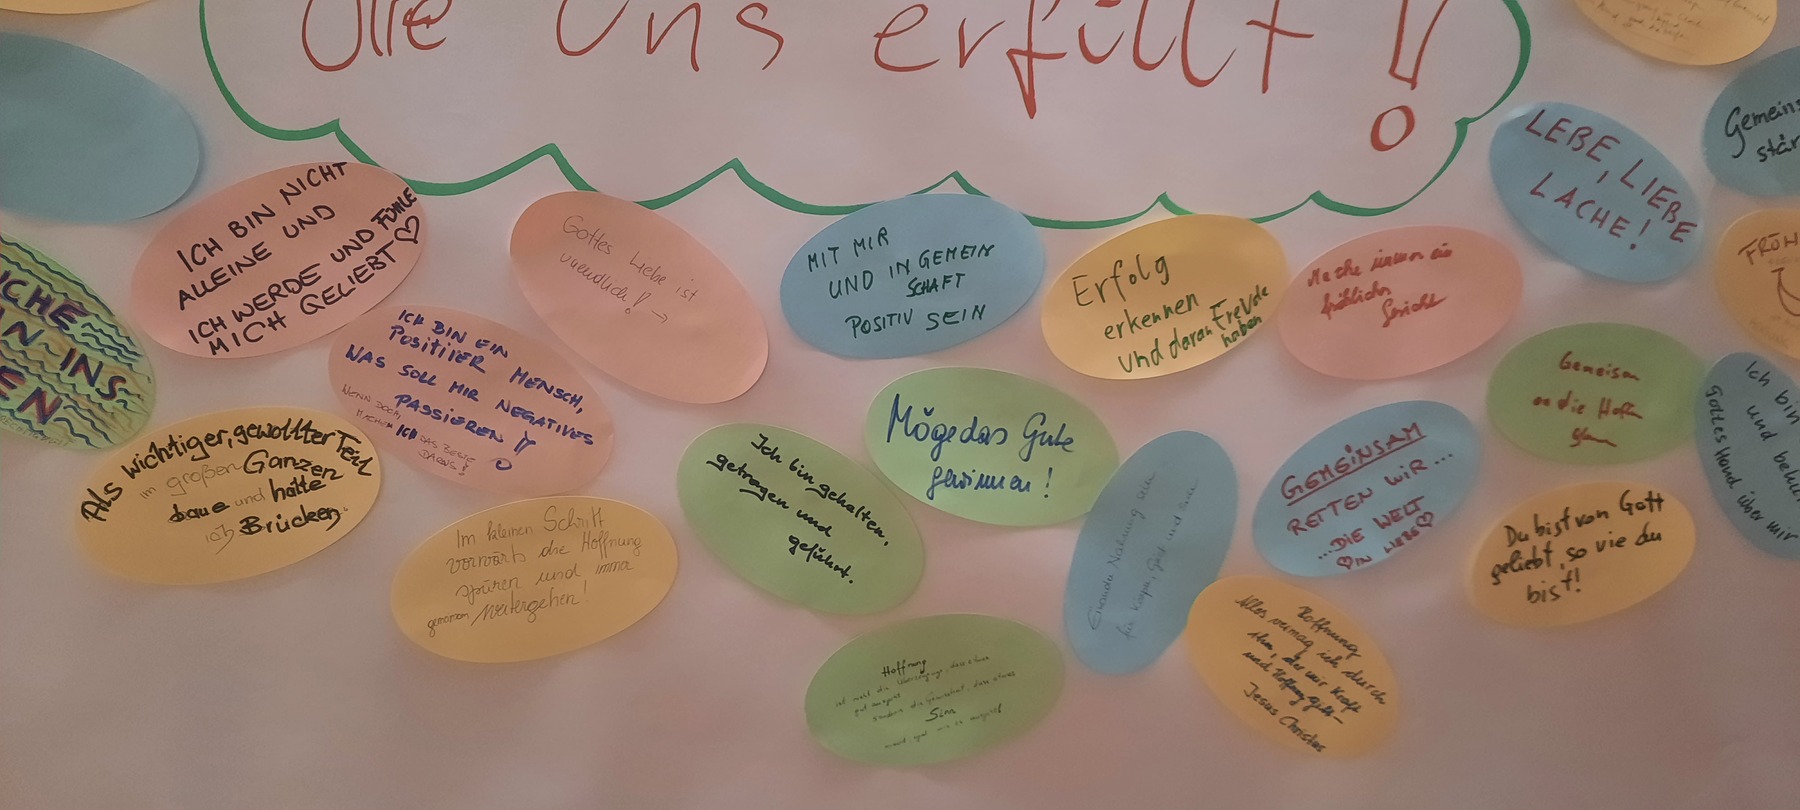 die Uns erfüllt!
LEBE, LIEBE
LACHE!
Gemeins
stär
ICH BIN NICHT
ALLEINE UND
ICH WERDE UND FÜHLE
MICH GELIEBT ♡
Gottes Liebe ist
unendlich! →
MIT MIR
UND IN GEMEIN
SCHAFT
POSITIV SEIN
Erfolg
erkennen
und daran Freude
haben
fröhliches
Gesicht
FRÖH
INS
EN
ICH BIN EIN
POSITIVER MENSCH,
WAS SOLL MIR NEGATIVES
PASSIEREN
WENN DOCH
ICH DAS BESTE
Gemeinsam
an die Hoffn
Ich bin
und behü
Gottes Hand über mir
Als wichtiger, gewollter Teil
im großen Ganzen
baue und halte
ich Brücken.
Möge das Gute
gewinnen!
Ich bin gehalten,
getragen und
geführt.
GEMEINSAM
RETTEN WIR...
...DIE WELT
♡IN LIEBE♡
Du bist von Gott
geliebt, so wie du
bist!
Im kleinen Schritt
vorwärts die Hoffnung
spüren und immer
gemeinsam weitergehen!
Nahrung
für Körper, Geist und Seele
Hoffnung
Alles vermag ich durch
ihn, der mir Kraft
und Hoffnung gibt –
Jesus Christus
Hoffnung
ist nicht die Überzeugung, dass etwas
gut ausgeht
sondern die Gewissheit, dass etwas
Sinn
macht egal wie es ausgeht